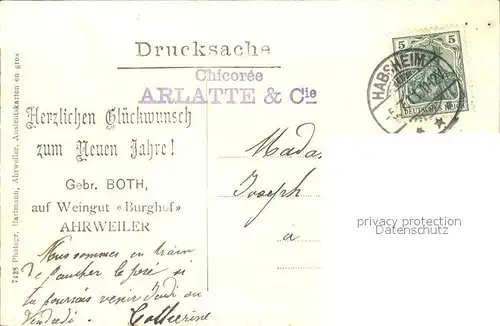 Drucksache
Chicorée
ARLATTE & Cie
5 5
DEUTSCHES REICH
HABSHEIM
Herzlichen Glückwunsch
zum Neuen Jahre!
Gebr. BOTH,
auf Weingut «Burghof»
AHRWEILER
7428 Photogr. Hartmann, Ahrweiler, Ansichtskarten en gros
Mada
Joseph
à
privacy protection
Datenschutz
Nous sommes en train
de faucher le pré si
tu pourrais venir Jeudi ou
Vendredi. Catherine